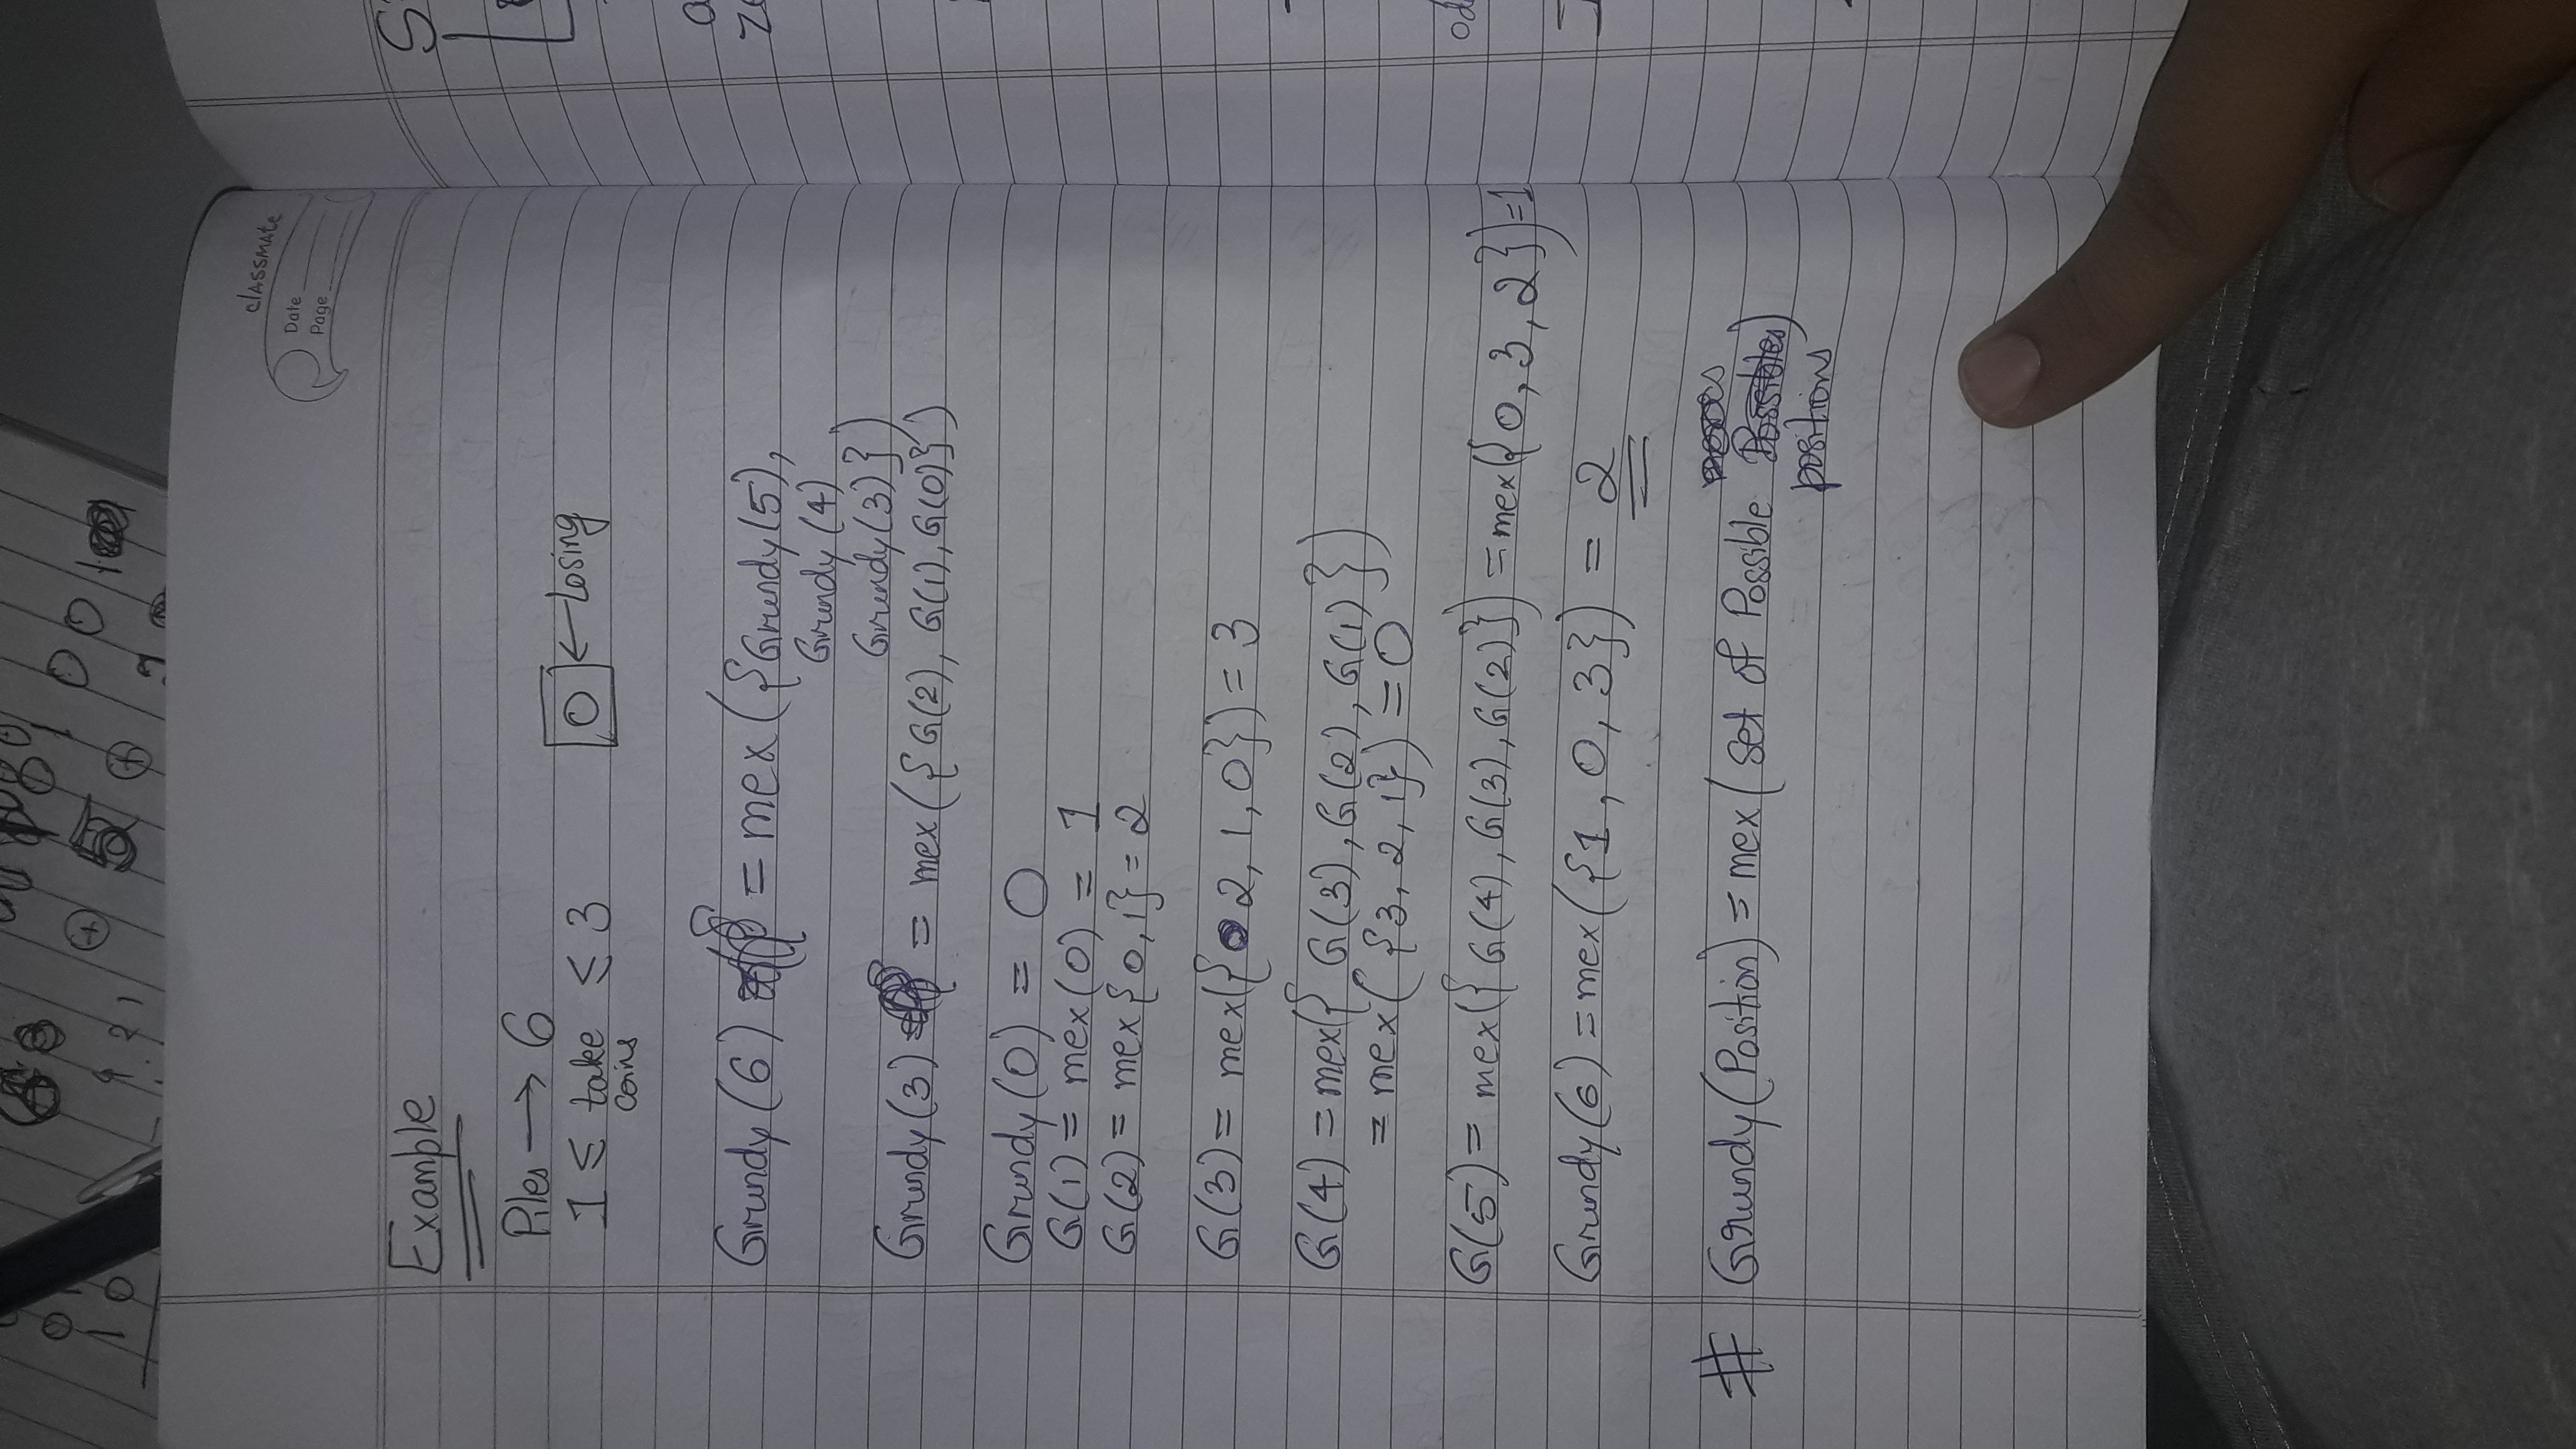 classmate
Date
Page
Example
Piles → 6
1 ≤ take ≤ 3
coins
0 ← Losing
Grundy (6) = mex ({Grundy(5),
Grundy (4)
Grundy (3)})
Grundy (3) = mex ({G(2), G(1), G(0)})
Grundy (0) = 0
G(1) = mex(0) = 1
G(2) = mex{0,1} = 2
G(3) = mex({2, 1, 0}) = 3
G(4) = mex({G(3), G(2), G(1)})
= mex({3, 2, 1}) = 0
G(5) = mex({G(4), G(3), G(2)}) = mex({0, 3, 2}) = 1
Grundy (6) = mex({1, 0, 3}) = 2
# Grundy (Position) = mex (set of Possible )
positions